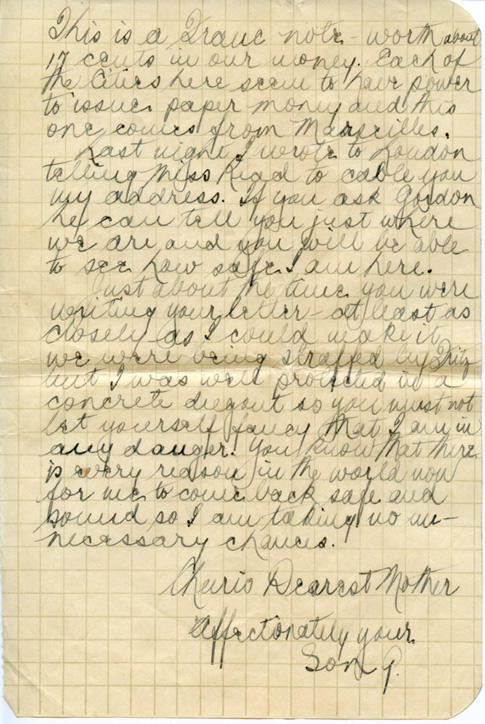 This is a Franc note - worth about
17 cents in our money. Each of
the Cities here seem to have power
to issue paper money and this
one comes from Marseilles.
Last night I wrote to London
telling Miss Read to cable you
my address. If you ask Gordon
he can tell you just where
we are and you will be able
to see how safe I am here.
Just about the time you were
writing your letter - at least as
closely as I could make it
we were being straffed by Fritz
but I was well protected in a
concrete dugout so you must not
let yourself fancy that I am in
any danger. You know that there
is every reason in the world now
for me to come back safe and
sound so I am taking no un-
necessary chances.
Cheerio Dearest Mother
Affectionately your
Son